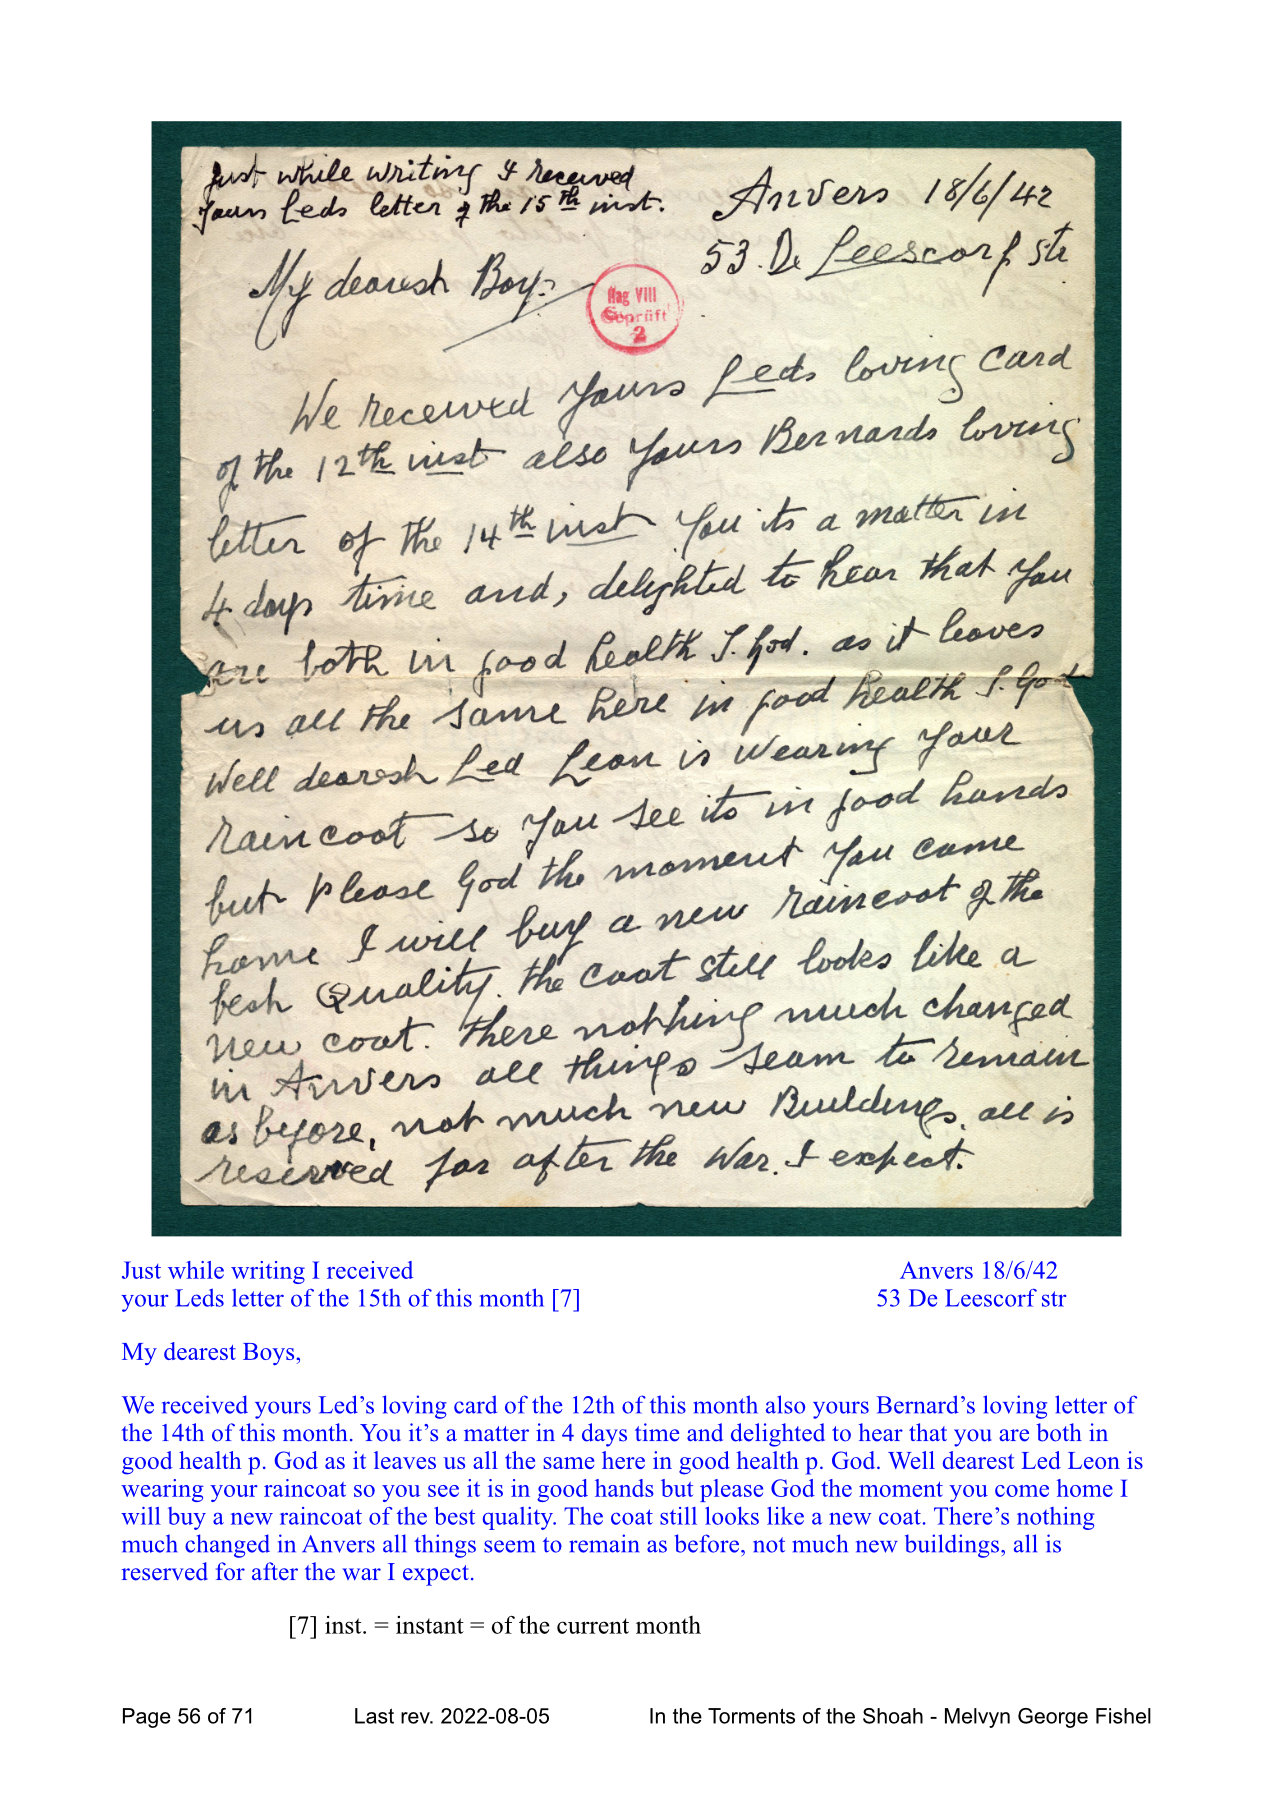 Just while writing I received
Yours Leds letter of the 15th inst.
Anvers 18/6/42
53. De Leescorf Str
My dearest Boys
Hag VIII
Geprüft
2
We received Yours Leds loving card
of the 12th inst also Yours Bernards loving
letter of the 14th inst You its a matter in
4 days time and, delighted to hear that You
are both in good health T. God. as it leaves
us all the same here in good health T. God
Well dearest Led Leon is wearing Your
raincoat so You see its in good hands
but please God the moment You come
home I will buy a new raincoat of the
best Quality. The coat still looks like a
new coat. There nothing much changed
in Anvers all things seam to remain
as before, not much new Buildings, all is
reserved for after the War. I expect.
Just while writing I received
your Leds letter of the 15th of this month [7]
Anvers 18/6/42
53 De Leescorf str
My dearest Boys,
We received yours Led’s loving card of the 12th of this month also yours Bernard’s loving letter of
the 14th of this month. You it’s a matter in 4 days time and delighted to hear that you are both in
good health p. God as it leaves us all the same here in good health p. God. Well dearest Led Leon is
wearing your raincoat so you see it is in good hands but please God the moment you come home I
will buy a new raincoat of the best quality. The coat still looks like a new coat. There’s nothing
much changed in Anvers all things seem to remain as before, not much new buildings, all is
reserved for after the war I expect.
[7] inst. = instant = of the current month
Page 56 of 71 Last rev. 2022-08-05 In the Torments of the Shoah - Melvyn George Fishel